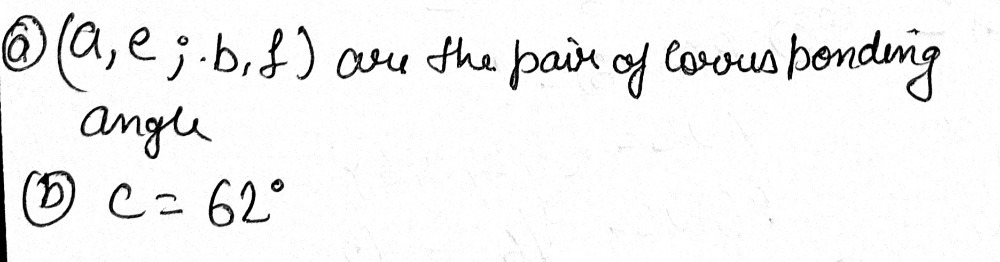 ⓐ (a, e ; . b, f) are the pair of Corrousponding
angle
ⓑ c = 62°